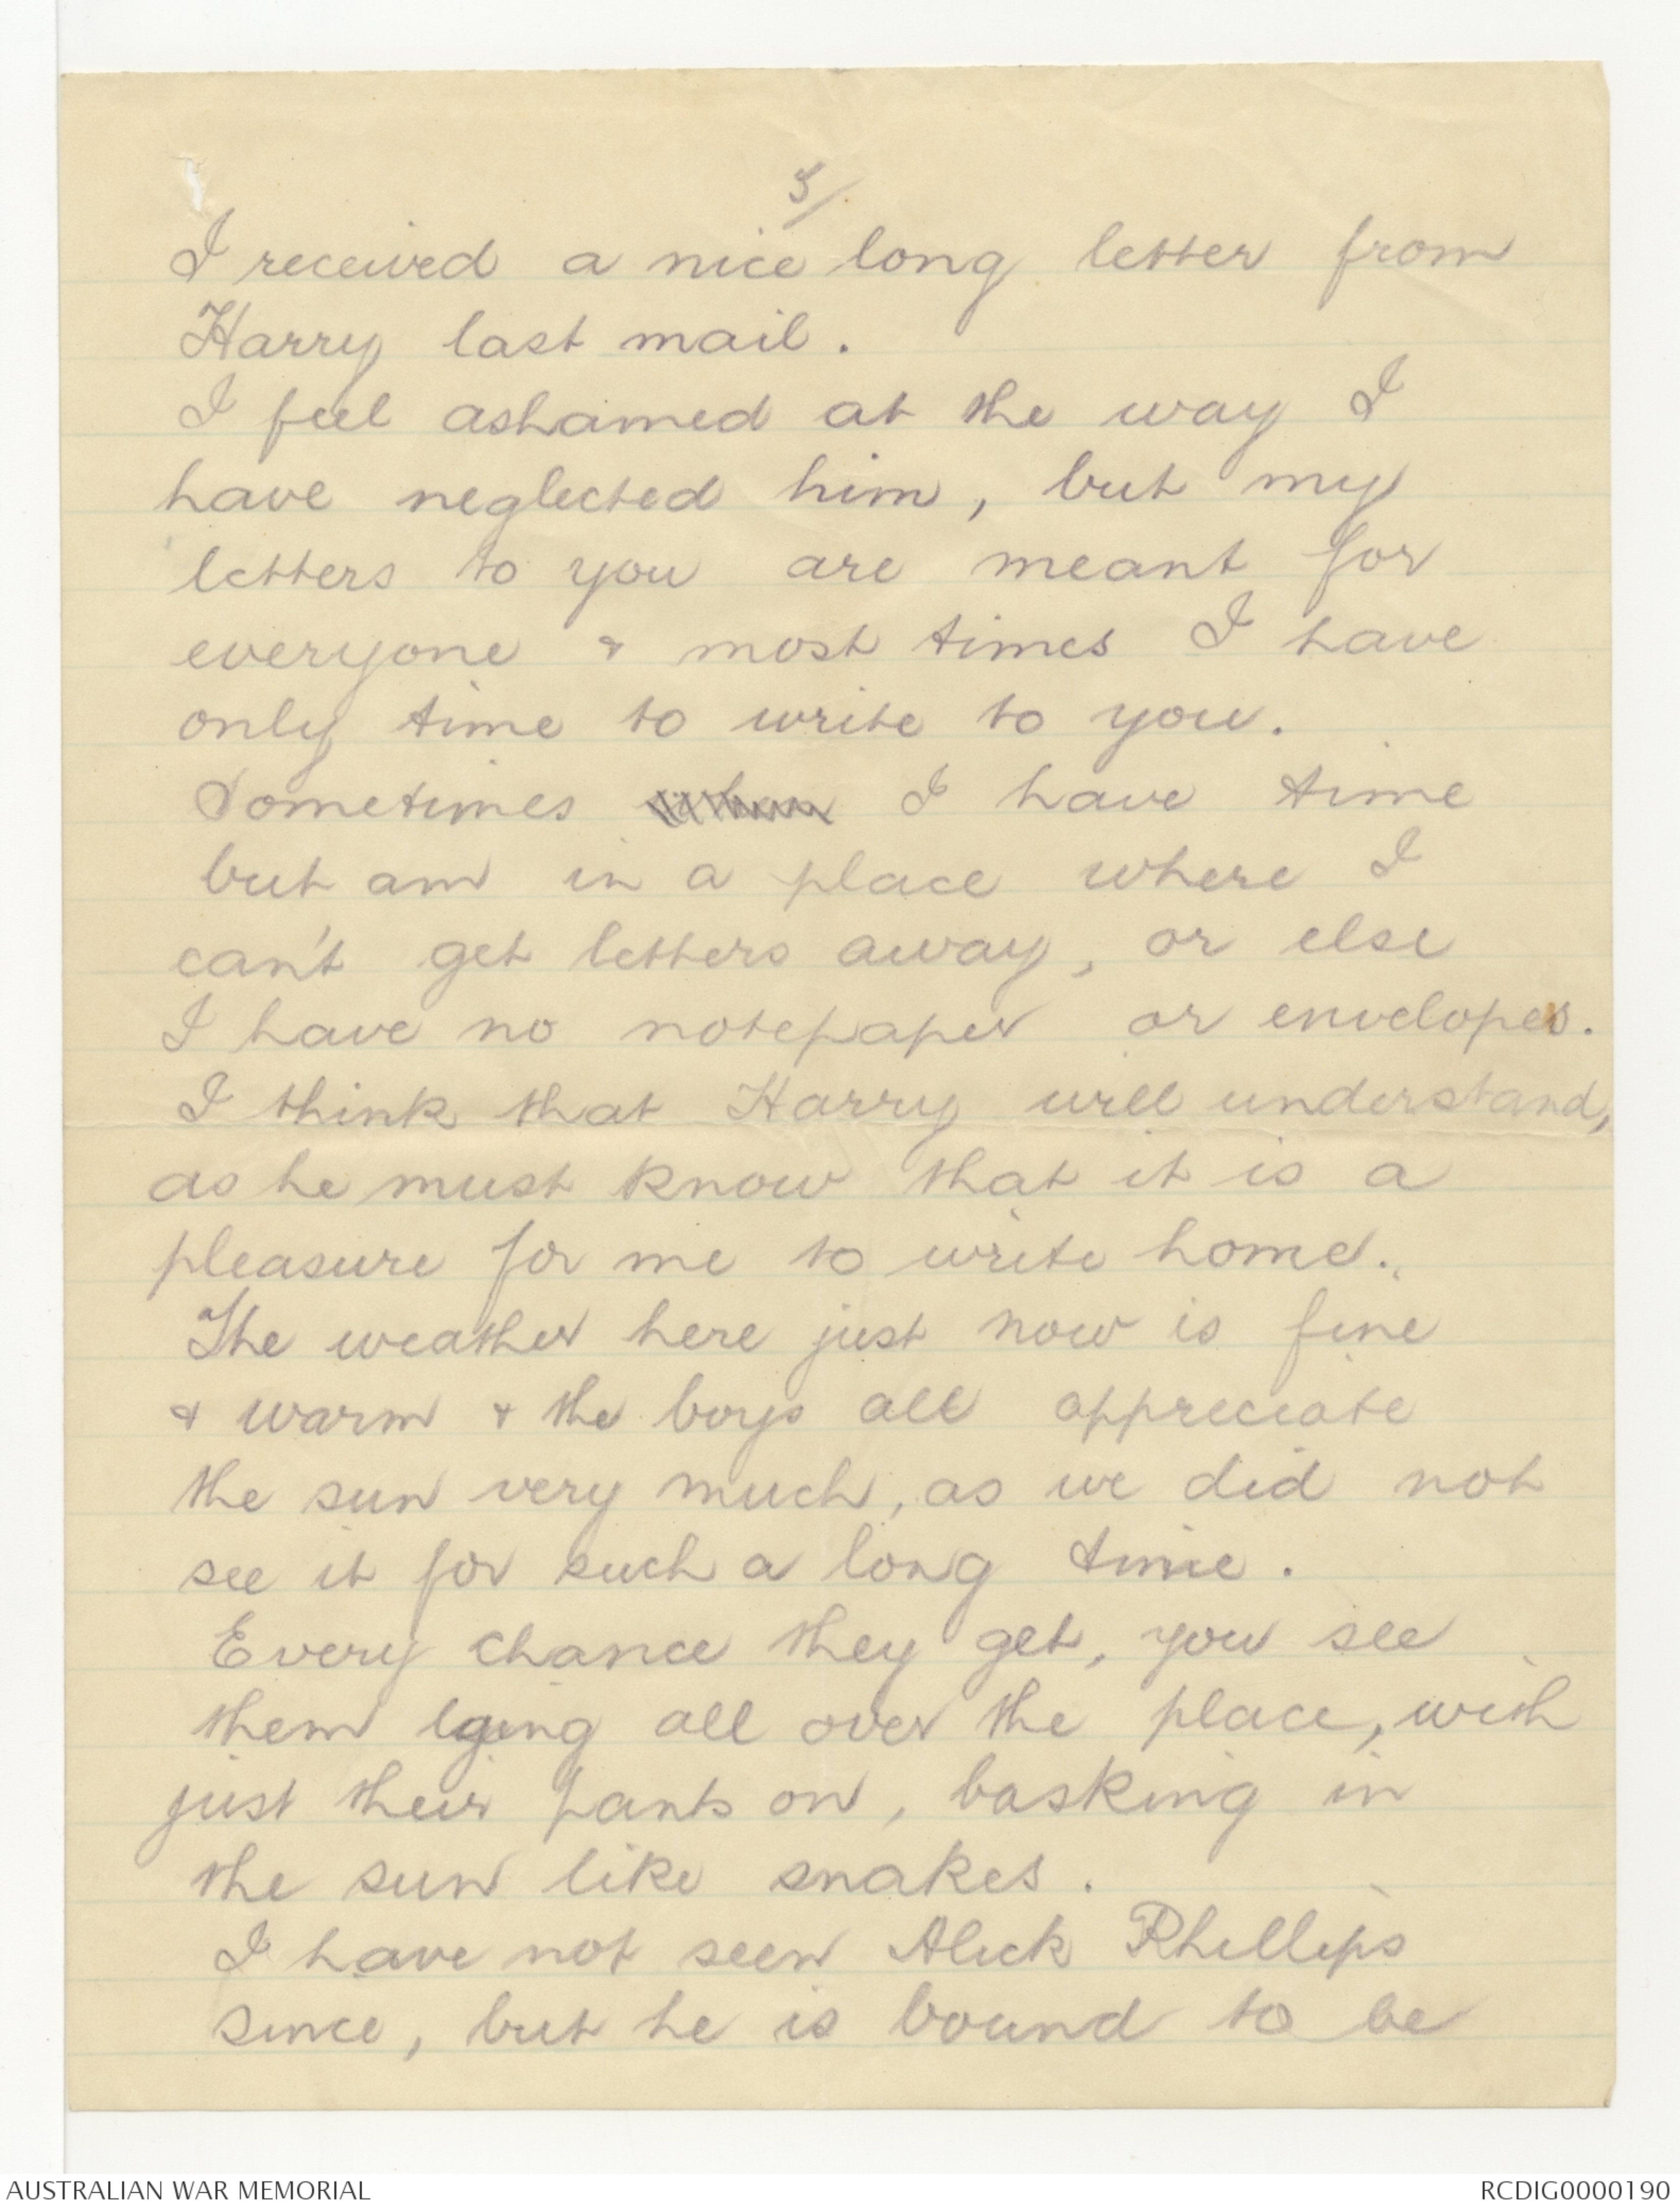 5/.
I received a nice long letter from
Harry last mail.
I feel ashamed at the way I
have neglected him, but my
letters to you are meant for
everyone & most times I have
only time to write to you.
Sometimes I have time
but am in a place where I
can't get letters away, or else
I have no notepaper or envelopes.
I think that Harry will understand,
as he must know that it is a
pleasure for me to write home.
The weather here just now is fine
& warm & the boys all appreciate
the sun very much, as we did not
see it for such a long time.
Every chance they get, you see
them lying all over the place, with
just their pants on, basking in
the sun like snakes.
I have not seen Alick Phillips
since, but he is bound to be
AUSTRALIAN WAR MEMORIAL
RCDIG0000190